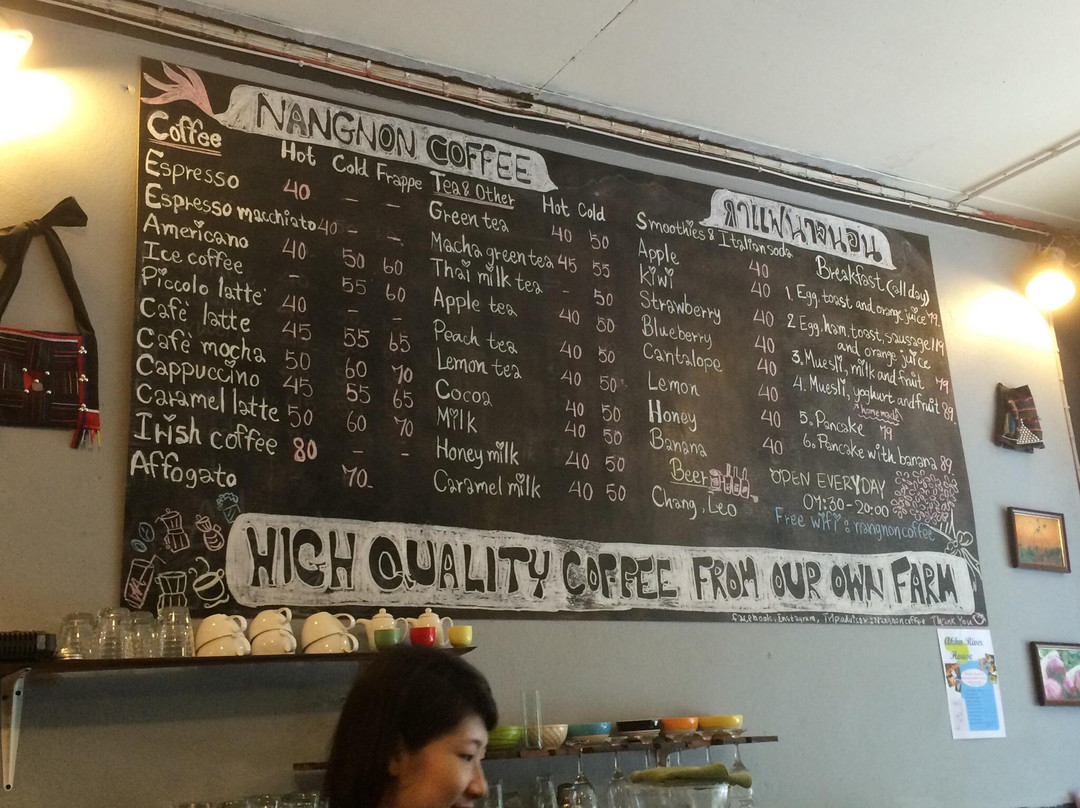 NANGNON COFFEE
กาแฟนางนอน
Coffee Hot Cold Frappe
Espresso 40 – –
Espresso macchiato 40 – –
Americano 40 50 60
Ice coffee – 55 60
Piccolo latte 40 – –
Cafè latte 45 55 65
Cafè mocha 50 60 70
Cappuccino 45 55 65
Caramel latte 50 60 70
Irish coffee 80 – –
Affogato 70-
Tea & Other Hot Cold
Green tea 40 50
Macha green tea 45 55
Thai milk tea – 50
Apple tea 40 50
Peach tea 40 50
Lemon tea 40 50
Cocoa 40 50
Milk 40 50
Honey milk 40 50
Caramel milk 40 50
Smoothies & Italian soda
Apple 40
Kiwi 40
Strawberry 40
Blueberry 40
Cantalope 40
Lemon 40
Honey 40
Banana 40
Beer
Chang, Leo
Breakfast (all day)
1. Egg, toast and orange juice 79.
2 Egg, ham, toast, sausage 119
and orange juice
3. Muesli, milk and fruit 79.
4. Muesli, yoghurt and fruit 89.
homemade
5. Pancake 79
6. Pancake with banana 89.
OPEN EVERYDAY
07:30-20:00
Free wifi : nangnoncoffee
HIGH QUALITY COFFEE FROM OUR OWN FARM
Thank you
House